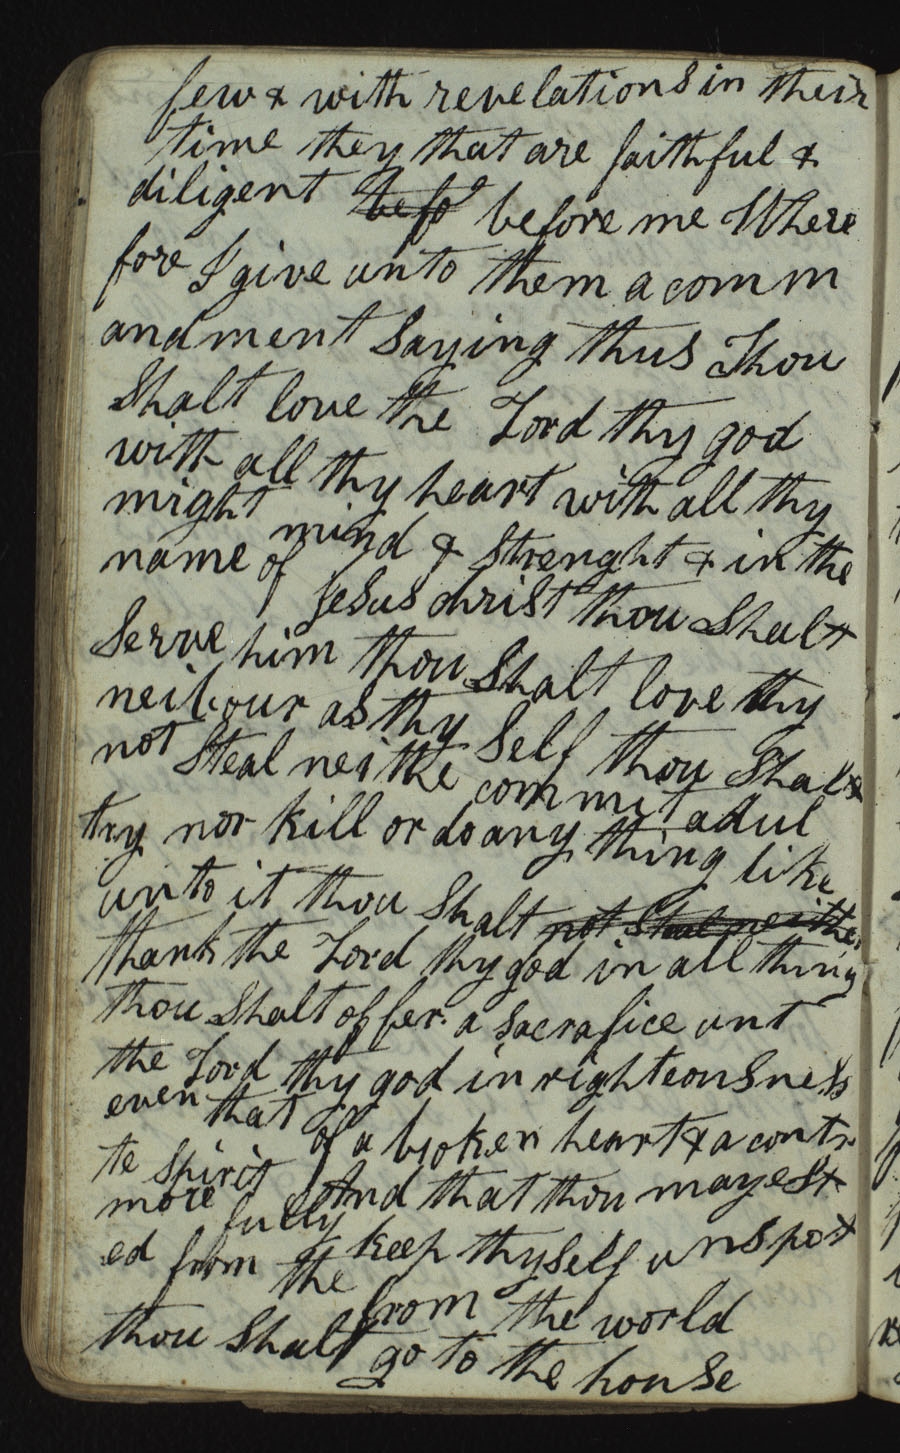 few & with revelations in their
time they that are faithful &
diligent befo before me Where
fore I give unto them a comm
andment Saying thus Thou
Shalt love the Lord thy god
with all thy heart with all thy
might mind & Strenght & in the
name of Jesus christ thou Shalt
Serve him thou Shalt love thy
neibour as thy Self thou Shalt
not Steal neithe commit adul
try nor kill or do any thing like
unto it thou Shalt not Steal neither
thank the Lord thy god in all thing
thou Shalt offer a sacrafice unt
the Lord thy god in righteousness
even that of a broken heart & a contr
te Spirit And that thou mayest
more fully keep thyself unspot
ed from the from the world
thou Shalt go to the house